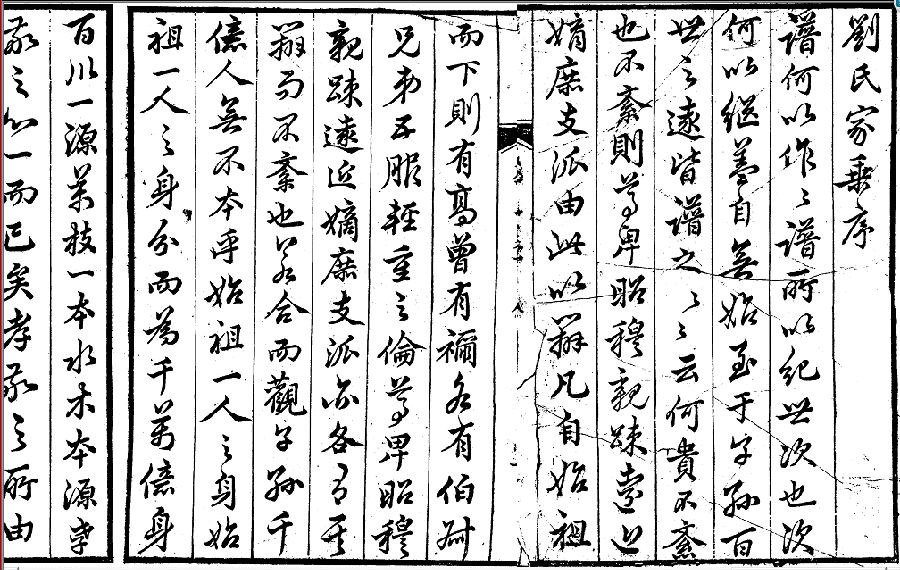 劉氏家乘序
譜何以作〻譜所以紀世次也次
何以継蓋自無始至于子孫百
世之遠皆譜之〻〻云何貴不紊
也不紊則尊卑昭穆親踈遠近
嫡庶支派由此以辨凡自始祖
而下則有高曾有禰各有伯叔
兄弟五服輕重之倫尊卑昭穆
親踈遠近嫡庶支派亦各有其
辨而不紊也若合而觀子孫千
億人無不本乎始祖一人之身始
祖一人之身分而為千萬億身
百川一源萬枝一本水木本源孝
敬之心一而已矣孝敬之所由